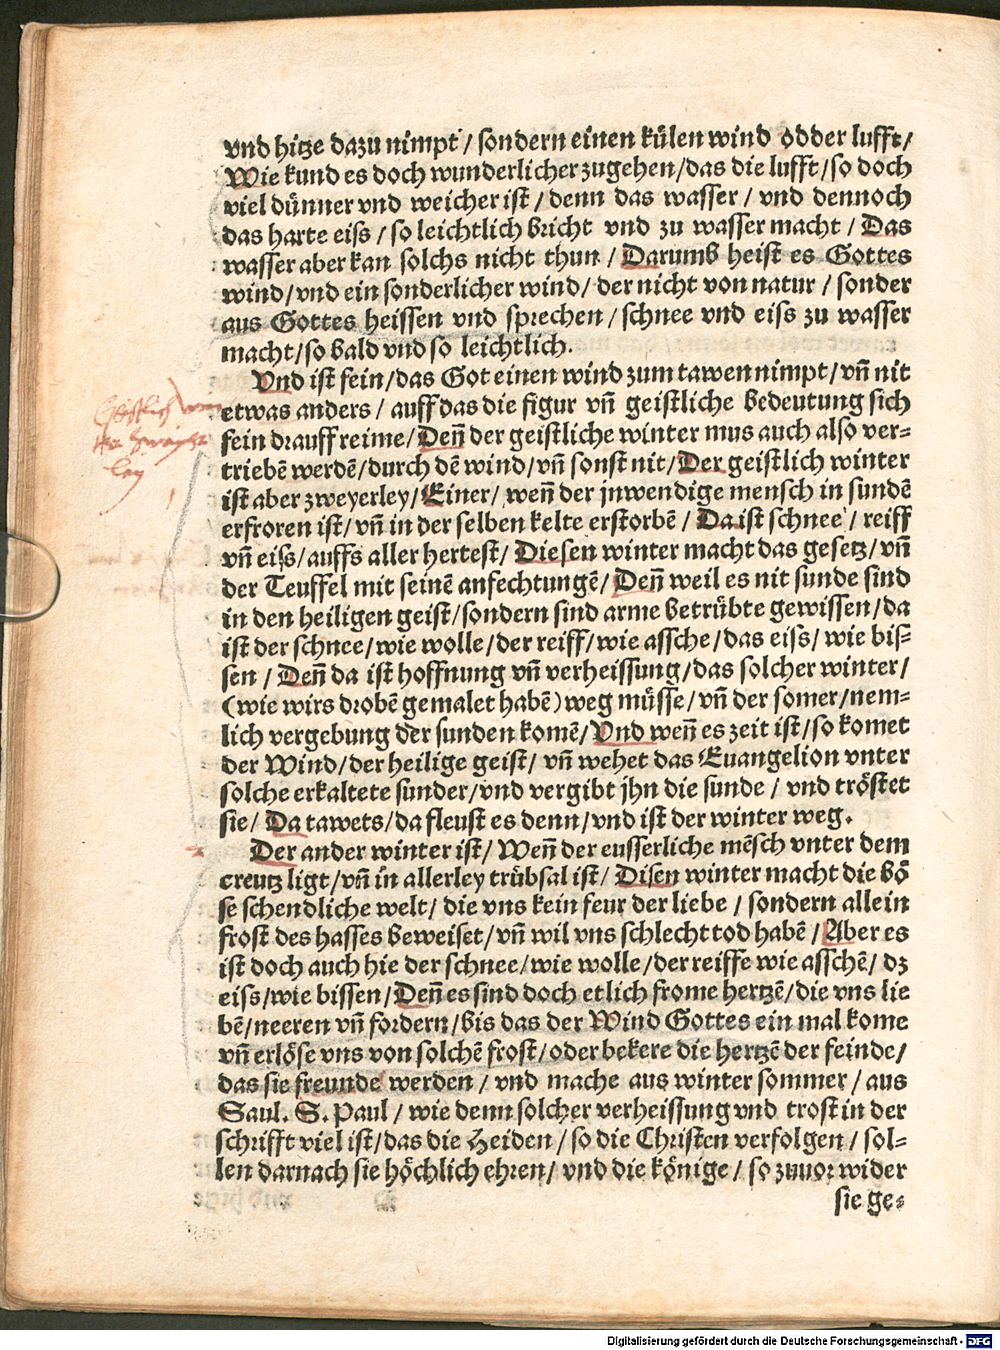 vnd hitze dazu nimpt / sondern einen külen wind odder lufft/
Wie kund es doch wunderlicher zugehen/das die lufft/so doch
viel dünner vnd weicher ist / denn das wasser / vnd dennoch
das harte eiss / so leichtlich bricht vnd zu wasser macht / Das
wasser aber kan solchs nicht thun / Darumb heist es Gottes
wind/vnd ein sonderlicher wind/ der nicht von natur / sonder
aus Gottes heissen vnd sprechen / schnee vnd eiss zu wasser
macht/so bald vnd so leichtlich.
Vnd ist fein/das Got einen wind zum tawen nimpt/vñ nit
etwas anders / auff das die figur vñ geistliche bedeutung sich
fein drauff reime/ Deñ der geistliche winter mus auch also ver=
triebẽ werdẽ/durch dẽ wind/vñ sonst nit/Der geistlich winter
ist aber zweyerley/Einer/ weñ der jnwendige mensch in sundẽ
erfroren ist/vñ in der selben kelte erstorbẽ / Da ist schnee / reiff
vñ eiss/auffs aller hertest/ Diesen winter macht das gesetz/vñ
der Teuffel mit seinẽ anfechtungẽ/ Deñ weil es nit sunde sind
in den heiligen geist/sondern sind arme betrübte gewissen/da
ist der schnee/wie wolle/der reiff/wie assche/das eiss/ wie bis=
sen / Deñ da ist hoffnung vñ verheissung/das solcher winter/
(wie wirs drobẽ gemalet habẽ) weg müsse/vñ der somer/nem=
lich vergebung der sunden komẽ/Vnd weñ es zeit ist/so komet
der Wind/der heilige geist/ vñ wehet das Euangelion vnter
solche erkaltete sunder/vnd vergibt jhn die sunde / vnd tröstet
sie/ Da tawets/da fleust es denn/vnd ist der winter weg.
Der ander winter ist/ Weñ der eusserliche mẽsch vnter dem
creutz ligt/vñ in allerley trübsal ist/ Disen winter macht die bö
se schendliche welt/ die vns kein feur der liebe / sondern allein
frost des hasses beweiset/vñ wil vns schlecht tod habẽ /Aber es
ist doch auch hie der schnee/wie wolle/der reiffe wie asschẽ/ dz
eiss/wie bissen/Deñ es sind doch etlich frome hertzẽ/die vns lie
bẽ/neeren vñ fordern/bis das der Wind Gottes ein mal kome
vñ erlöse vns von solchẽ frost/oder bekere die hertzẽ der feinde/
das sie freunde werden / vnd mache aus winter sommer / aus
Saul. S. Paul / wie denn solcher verheissung vnd trost in der
schrifft viel ist/das die Heiden / so die Christen verfolgen / sol=
len darnach sie höchlich ehren/ vnd die könige / so zuuor wider
sie ge=
Digitalisierung gefördert durch die Deutsche Forschungsgemeinschaft - DFG